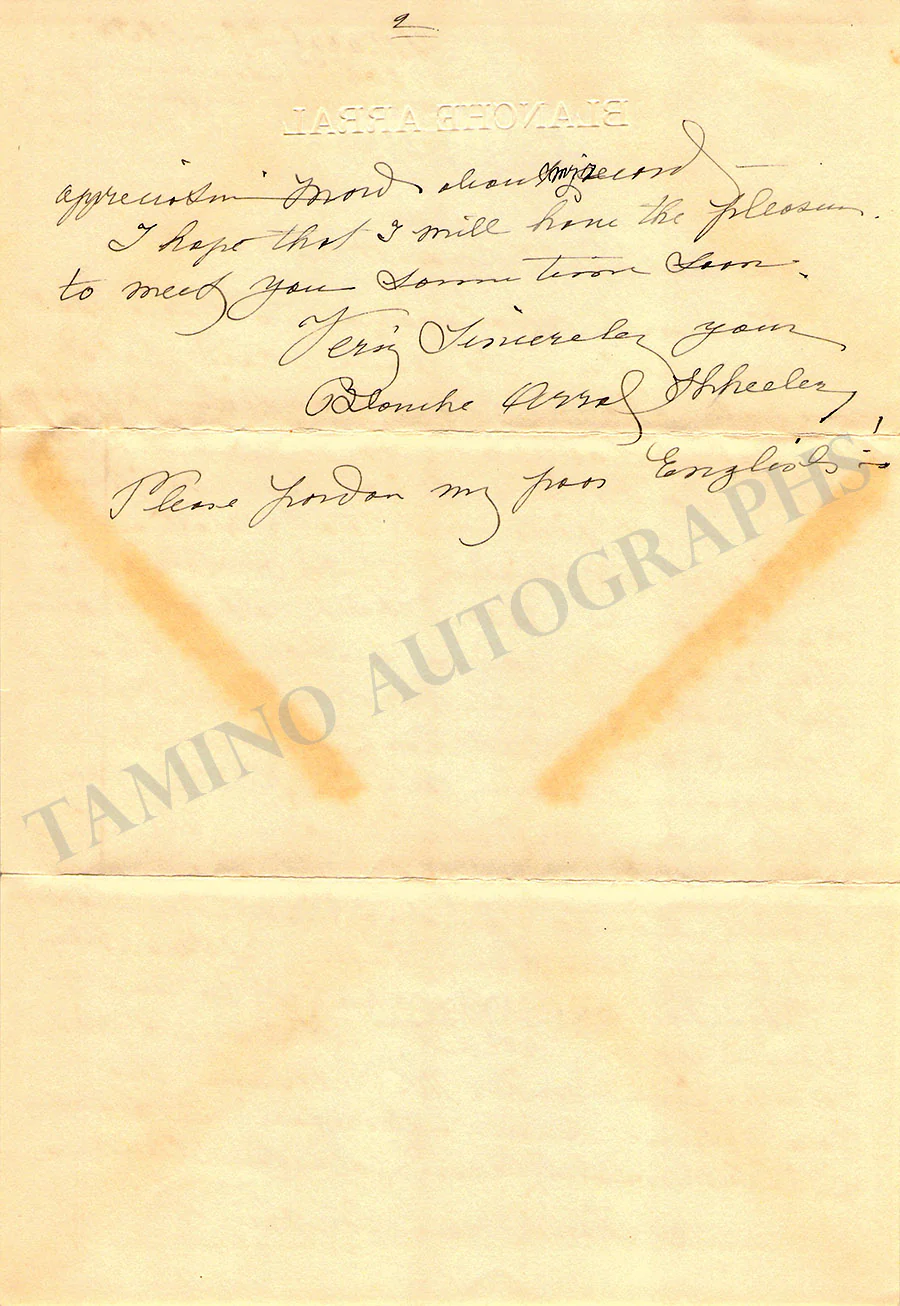 2
BLANCHE ARRAL
appreciation word about my record
I hope that I will have the pleasure
to meet you some time soon.
Very Sincereley your
Blanche Arral Wheeler
Please pardon my poor English!
TAMINO AUTOGRAPHS